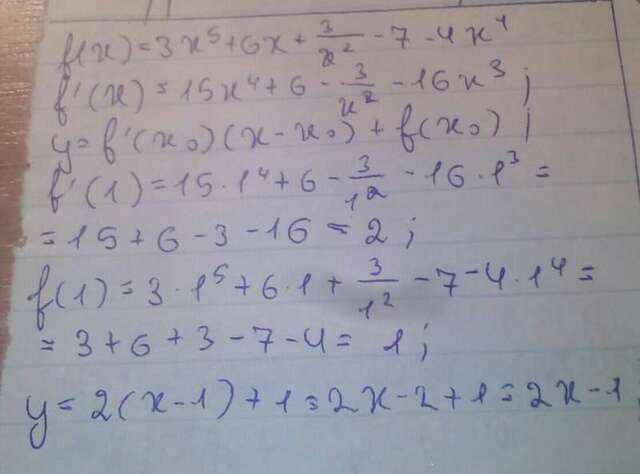 f(x) = 3x⁵ + 6x + 3/x² - 7 - 4x⁴
f'(x) = 15x⁴ + 6 - 3/x² - 16x³;
y = f'(x₀)(x - x₀) + f(x₀);
f'(1) = 15·1⁴ + 6 - 3/1² - 16·1³ =
= 15 + 6 - 3 - 16 = 2;
f(1) = 3·1⁵ + 6·1 + 3/1² - 7 - 4·1⁴ =
= 3 + 6 + 3 - 7 - 4 = 1;
y = 2(x - 1) + 1 = 2x - 2 + 1 = 2x - 1.